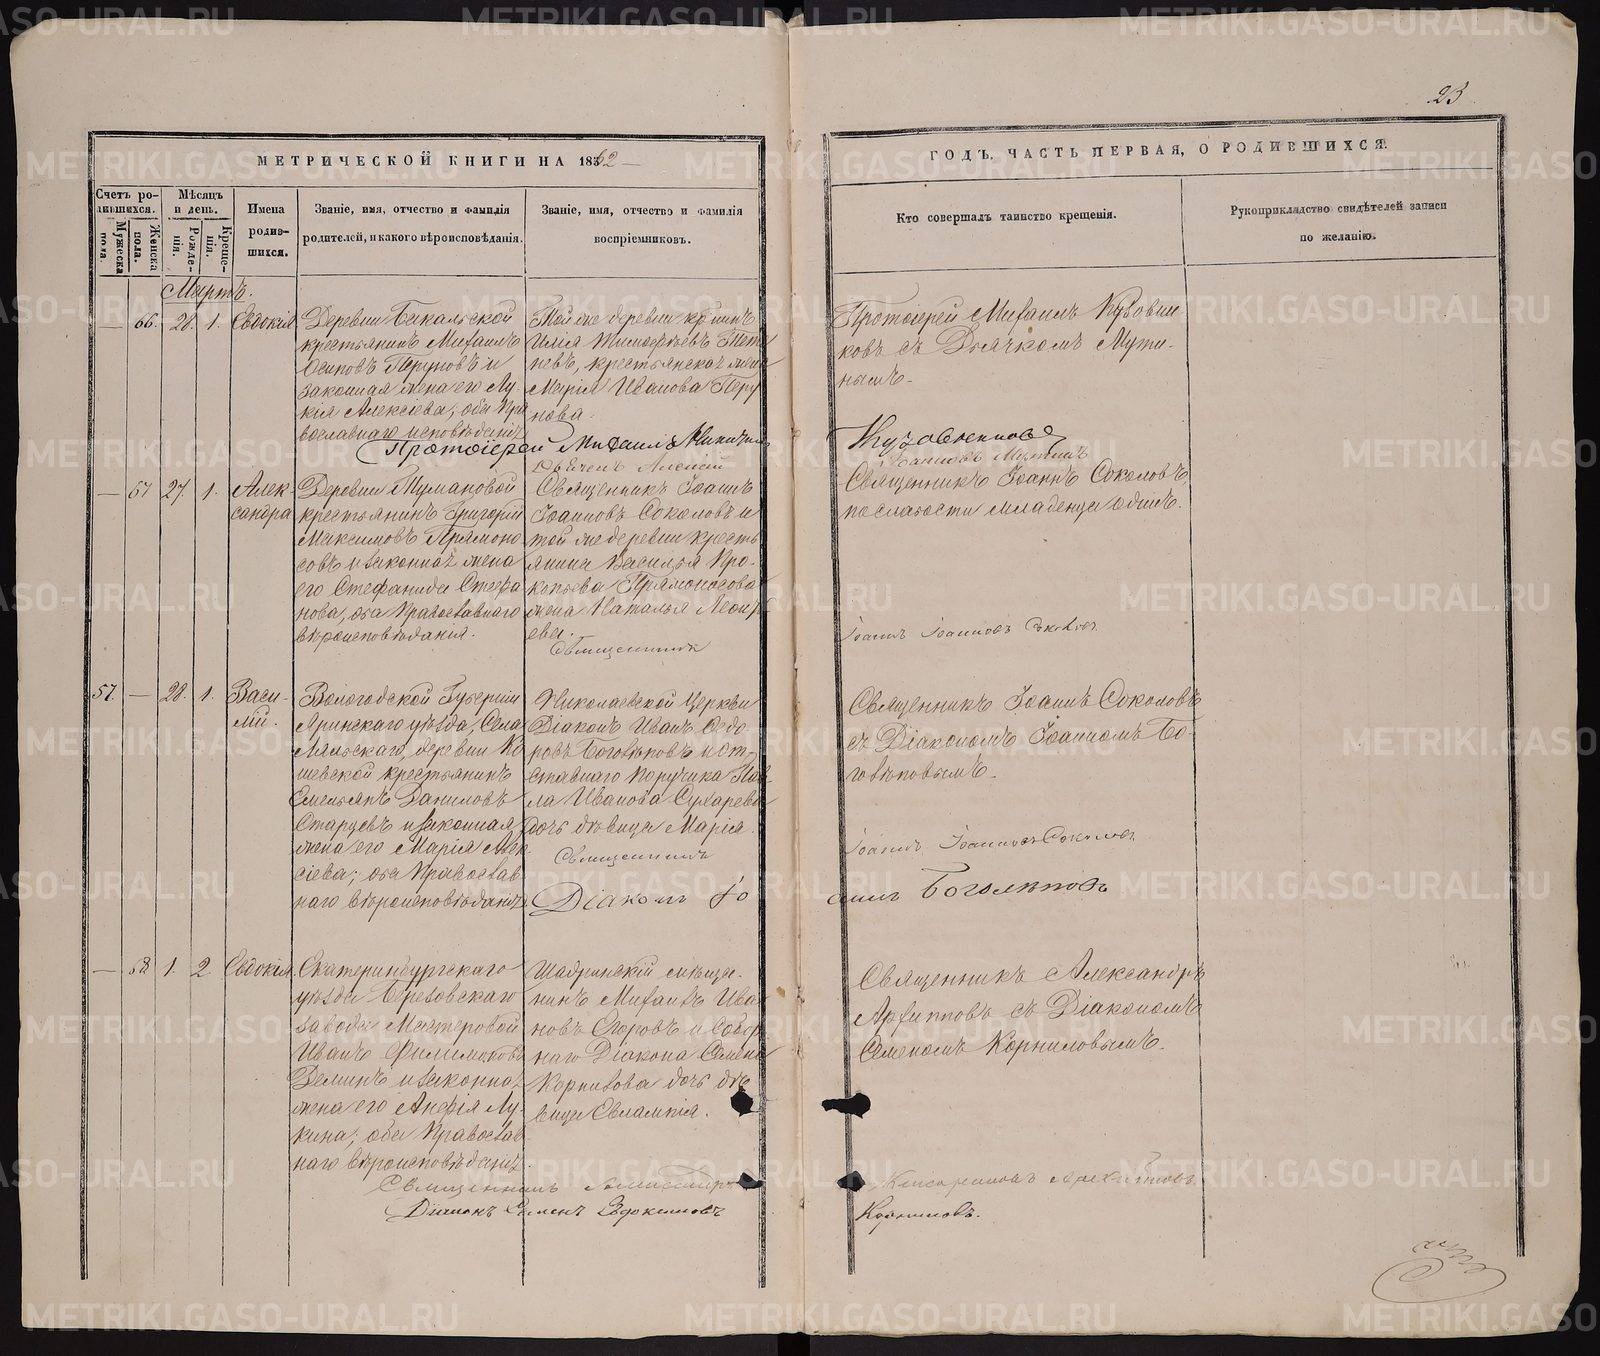 23
МЕТРИЧЕСКОЙ КНИГИ НА 1862
ГОДЪ, ЧАСТЬ ПЕРВАЯ, О РОДИВШИХСЯ.
Счетъ ро-
дившихся.
Мужеска
пола.
Женска
пола.
Мѣсяцъ
и день.
Рожде-
нія.
Креще-
нія.
Имена
родив-
шихся.
Званіе, имя, отчество и фамилія
родителей, и какого вѣроисповѣданія.
Званіе, имя, отчество и фамилія
воспріемниковъ.
Кто совершалъ таинство крещенія.
Рукоприкладство свидѣтелей записи
по желанію.
Мартъ.
— 66. 28. 1. Евдокія
Деревни Бакальской
крестьянинъ Михаилъ
Осиповъ Перуновъ и
законная жена его Лу-
кія Алексіева, оба пра
вославнаго исповѣданія
Той же деревни кр-нинъ
Илія Тимофѣевъ
невъ, крестьянская жена
Марія Иванова Перу
нова.
Протоіерей Михаилъ Кузовни
ковъ съ Дьячкомъ Мути-
нымъ.
Протоіерей Михаилъ Никитинъ
Кузовниковъ
Дьячекъ Алексій
Мутинъ
— 67 27. 1. Алек-
сандра
Деревни Тумановой
крестьянинъ Григорій
Максимовъ Прямоно
совъ и законная жена
его Стефанида Стефа
нова, оба Православнаго
вѣроисповѣданія.
Священникъ Іоаннъ
Іоанновъ Соколовъ и
той же деревни кресть
янина Василья Про-
копьева Прямоносова
жена Наталья Леонть
ева.
Священникъ Іоаннъ Соколовъ,
по слабости младенца одинъ.
Священникъ
Іоаннъ Іоанновъ Соколовъ
57. — 28. 1. Васи-
лій.
Вологодской Губерніи
Яринскаго уѣзда, Села
деревни Ко
шевской крестьянинъ
Емельянъ Даниловъ
Старцевъ и законная
жена его Марія Алек
сіева; оба Православ
наго вѣроисповѣданія
Николаевской Церкви
Діаконъ Иванъ Ѳедо
ровъ Боголѣповъ и от-
ставнаго Поручика Пав-
ла Иванова Сухарева
дочь дѣвица Марія.
Священникъ Іоаннъ Соколовъ
съ Діакономъ Іоанномъ Бо-
голѣповымъ.
Священникъ
Іоаннъ Іоанновъ Соколовъ
Діаконъ Іо
аннъ Боголѣповъ
— 68. 1. 2. Евдокія.
Екатеринбургскаго
уѣзда Березовскаго
завода Мастеровой
Иванъ Филимоновъ
Деминъ и законная
жена его Анфія Лу-
кина; оба Православ
наго вѣроисповѣданія.
Шадринскій мѣща-
нинъ Михаилъ Ива
новъ Егоровъ и Собор
наго Діакона Семена
Корнилова дочь дѣ
вица Евлампія.
Священникъ Александръ
Архиповъ съ Діакономъ
Семеномъ Корниловымъ.
Священникъ Александръ
Архиповъ
Діаконъ Семенъ Евдокимовъ
Корниловъ.
METRIKI.GASO-URAL.RU